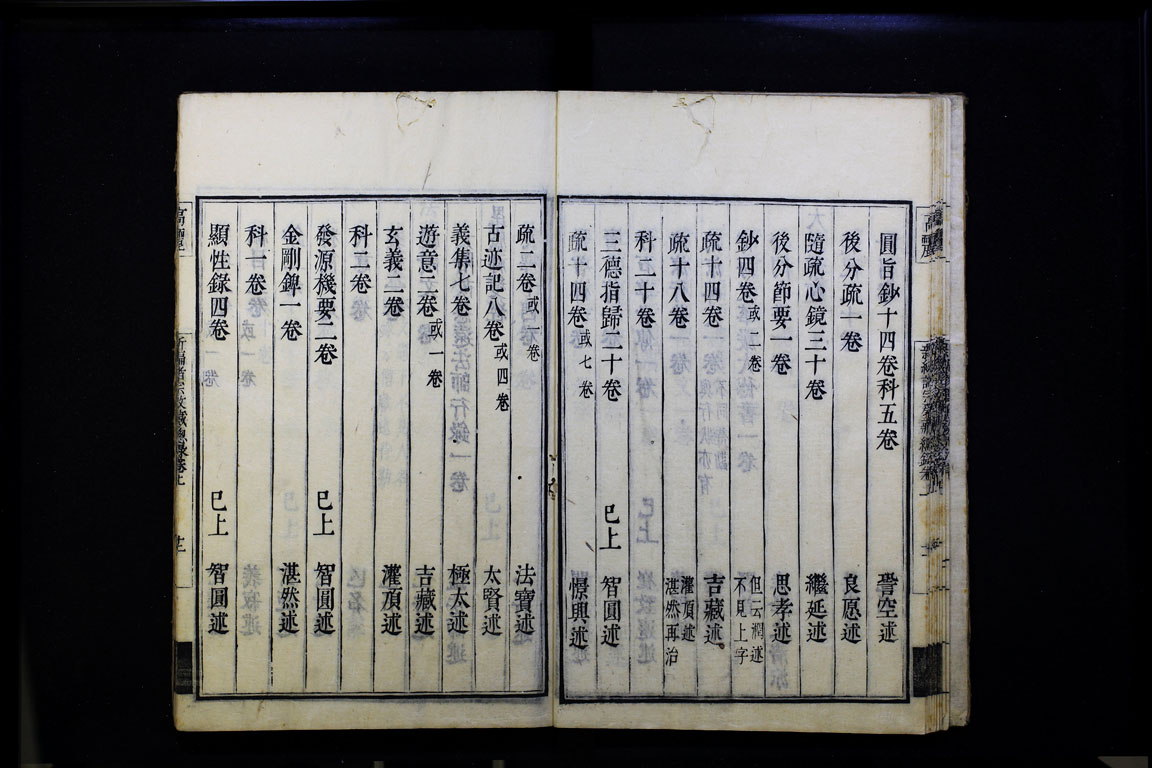 圓旨鈔十四卷科五卷 誉空述
後分疏一卷 良愿述
隨疏心鏡三十卷 繼延述
後分節要一卷 思孝述
鈔四卷或二卷 但云潤述不見上字
疏十四卷 吉藏述
疏十八卷 灌頂述湛然再治
科二十卷
三德指歸二十卷 已上 智圓述
疏十四卷或七卷 憬興述
疏二卷或一卷 法寶述
古迹記八卷或四卷 太賢述
義集七卷 極太述
遊意二卷或一卷 吉藏述
玄義二卷 灌頂述
科二卷
發源機要二卷 已上 智圓述
金剛錍一卷 湛然述
科一卷
顯性錄四卷 已上 智圓述
高麗
新編諸宗教藏總錄卷上
十二